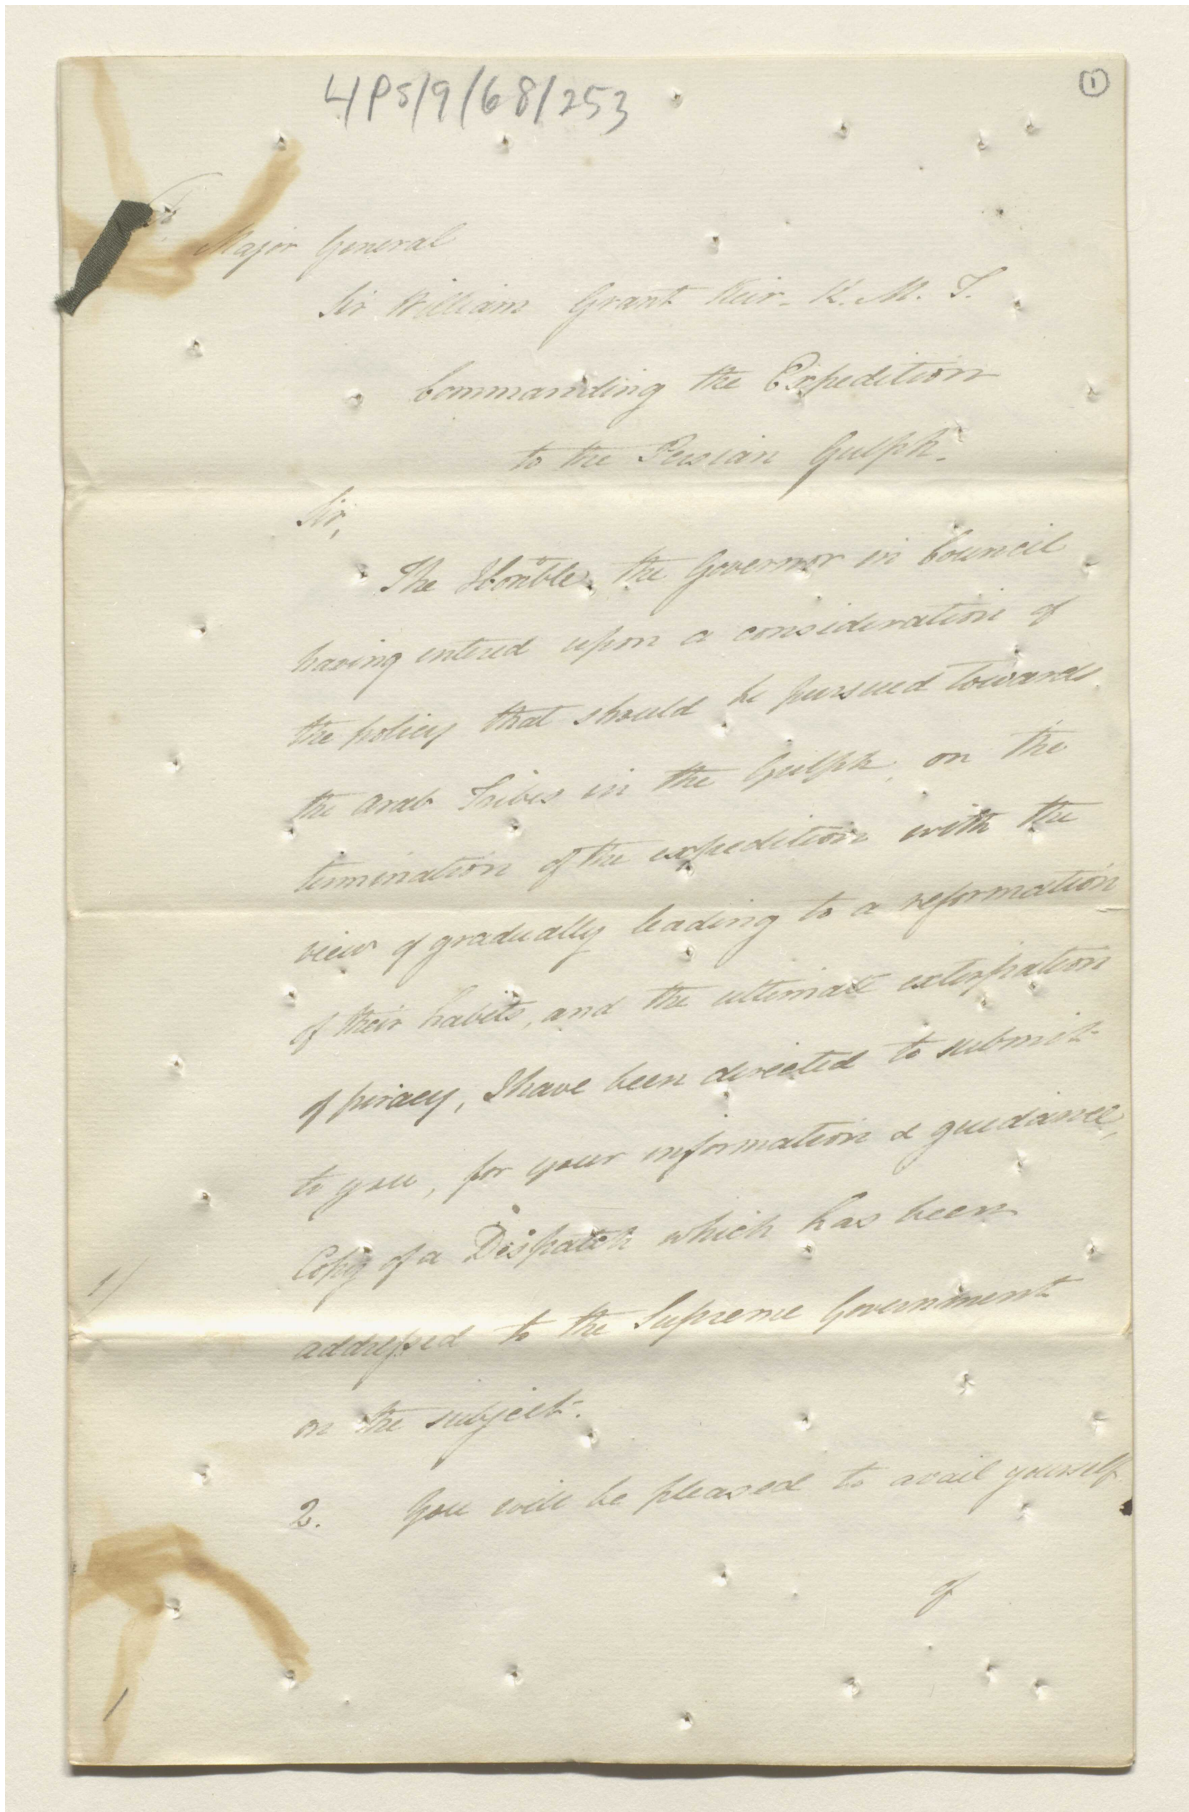 L/PS/9/68/253
1
Major General
Sir William Grant Keir - K. M. T.
Commanding the Expedition
to the Persian Gulph.
Sir,
The Honble. the Governor in Council
having entered upon a consideration of
the policy that should be pursued towards
the Arab Tribes in the Gulph, on the
termination of the expedition with the
view of gradually leading to a reformation
of their habits, and the ultimate extirpation
of piracy, I have been directed to submit
to you, for your information & guidance,
Copy of a Dispatch which has been
1/
addressed to the Supreme Government
on the subject.
2. You will be pleased to avail yourself
of